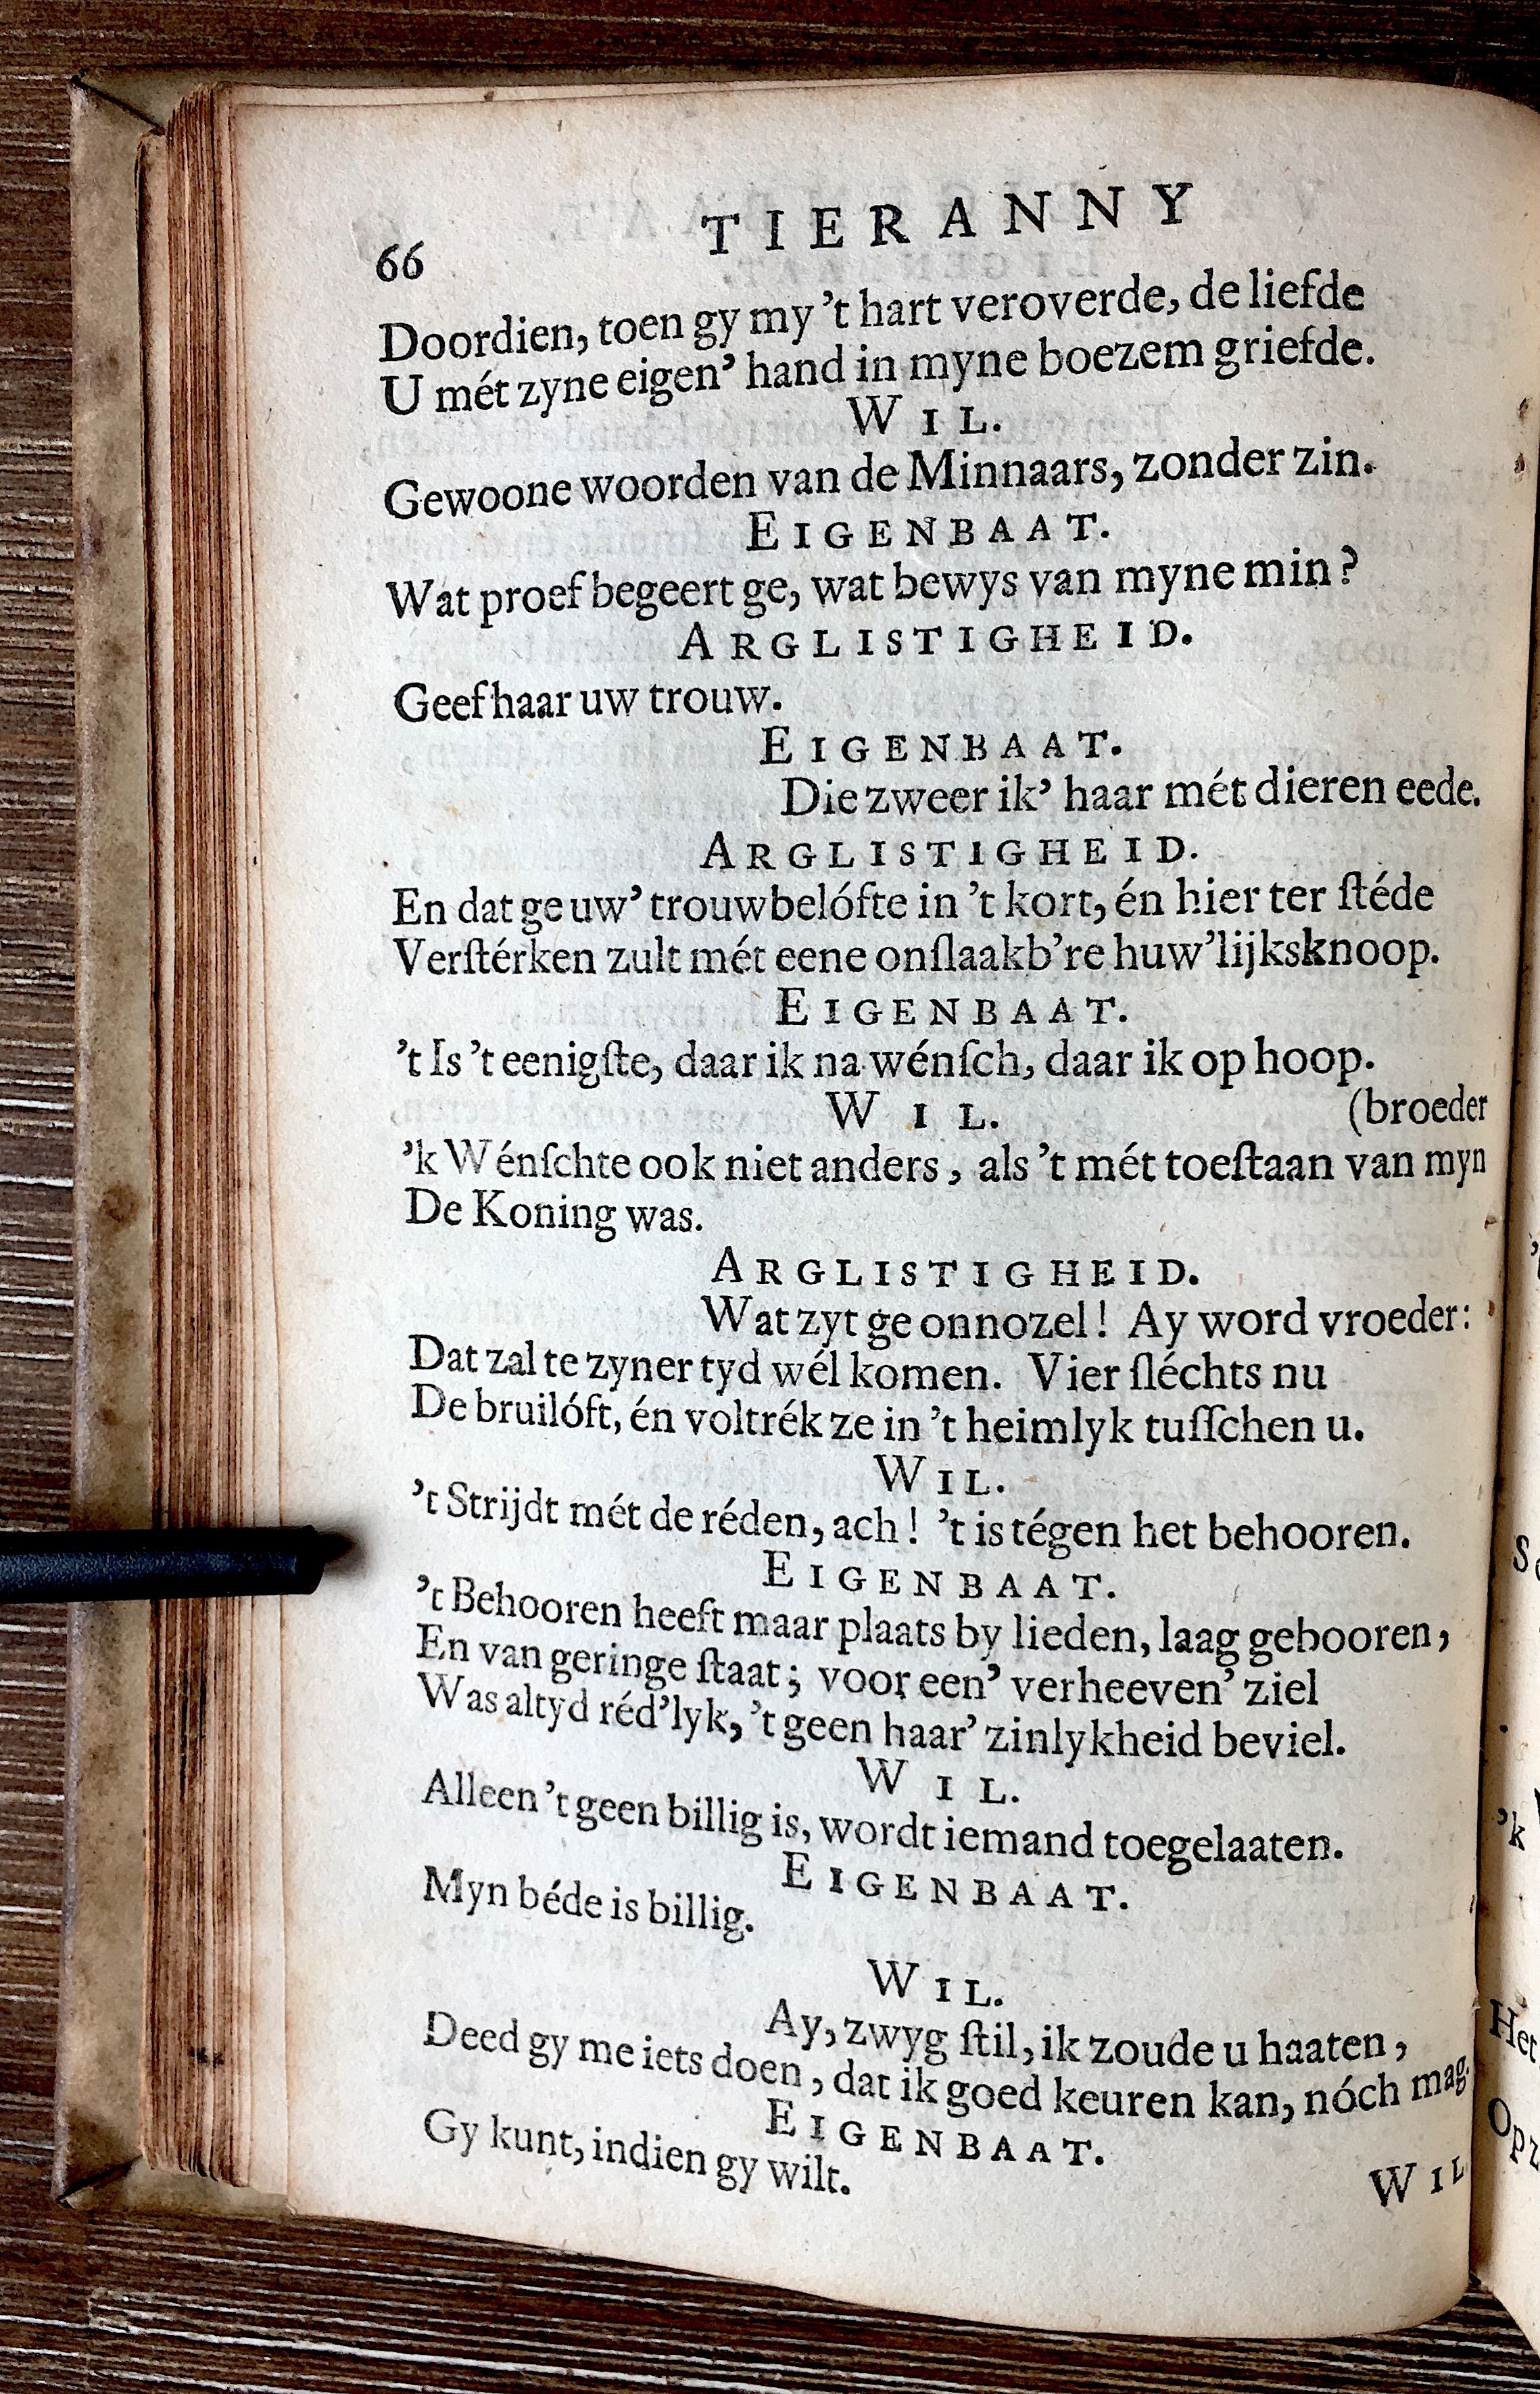 66 TIERANNY
Doordien, toen gy my ’t hart veroverde, de liefde
U mét zyne eigen’ hand in myne boezem griefde.
WIL.
Gewoone woorden van de Minnaars, zonder zin.
EIGENBAAT.
Wat proef begeert ge, wat bewys van myne min?
ARGLISTIGHEID.
Geef haar uw trouw.
EIGENBAAT.
Die zweer ik’ haar mét dieren eede.
ARGLISTIGHEID.
En dat ge uw’ trouwbelófte in ’t kort, én hier ter ſtéde
Verſtérken zult mét eene onſlaakb’re huw’lijksknoop.
EIGENBAAT.
’t Is ’t eenigſte, daar ik na wénſch, daar ik op hoop.
WIL. (broeder
’k Wénſchte ook niet anders, als ’t mét toeſtaan van myn
De Koning was.
ARGLISTIGHEID.
Wat zyt ge onnozel! Ay word vroeder:
Dat zal te zyner tyd wél komen. Vier ſléchts nu
De bruilóft, én voltrék ze in ’t heimlyk tuſſchen u.
WIL.
’t Strijdt mét de réden, ach! ’t is tégen het behooren.
EIGENBAAT.
’t Behooren heeft maar plaats by lieden, laag gebooren,
En van geringe ſtaat; voor een’ verheeven’ ziel
Was altyd réd’lyk, ’t geen haar’ zinlykheid beviel.
WIL.
Alleen ’t geen billig is, wordt iemand toegelaaten.
EIGENBAAT.
Myn béde is billig.
WIL.
Ay, zwyg ſtil, ik zoude u haaten,
Deed gy me iets doen, dat ik goed keuren kan, nóch mag.
EIGENBAAT.
Gy kunt, indien gy wilt.
WIL
’k
Het